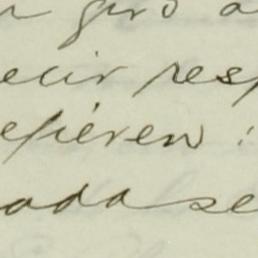 giro a
ecir res
efieren:
ada se